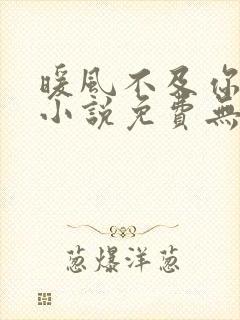 暖風不及你
小說免費無
葱爆洋葱